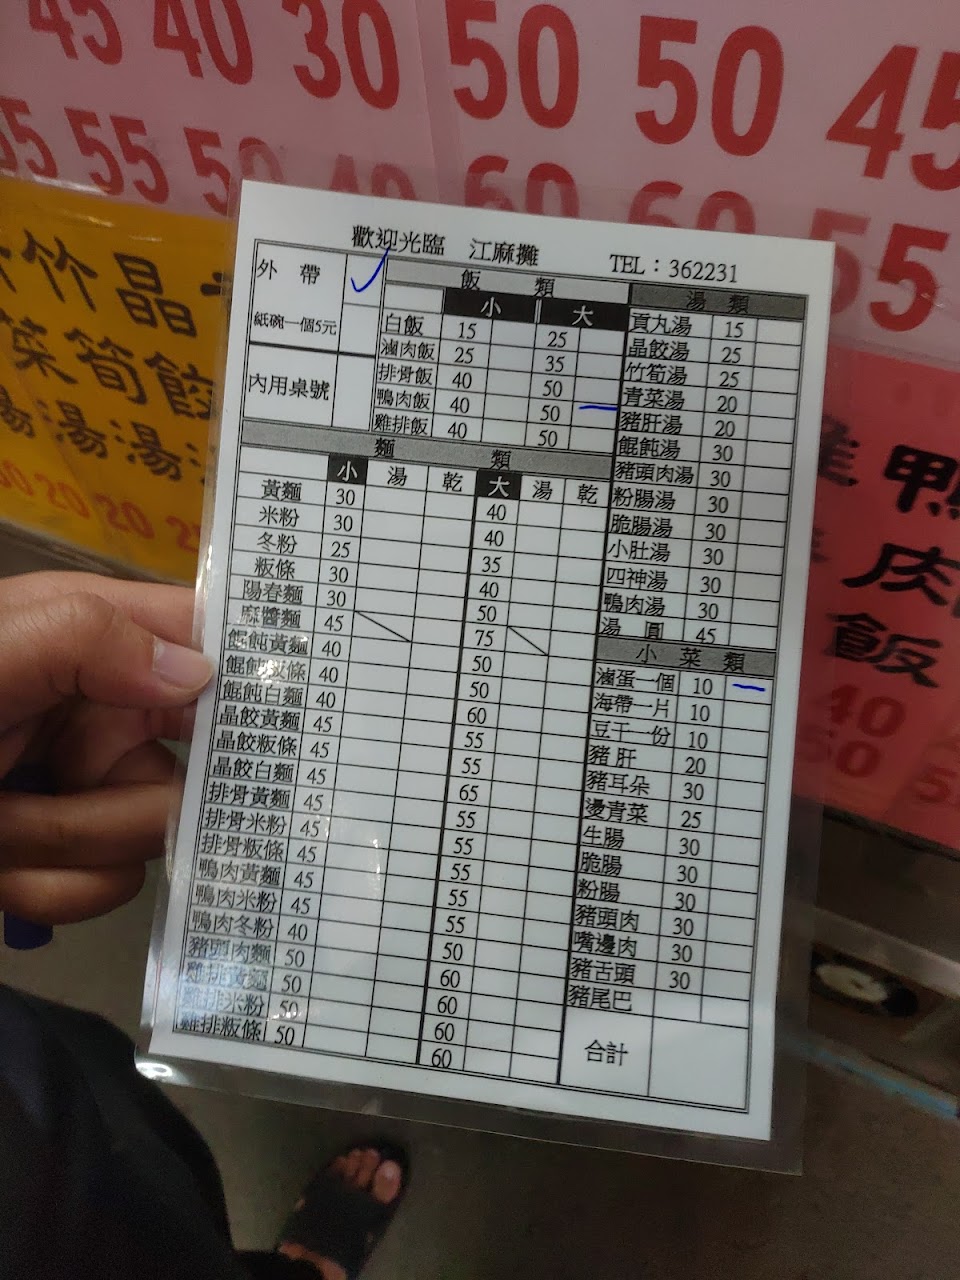 45 40 30 50 50 45
55 55 50 40 60 60 55
竹 晶
菜 筍 餃
湯 湯 湯
30 20 20
歡迎光臨 江麻攤 TEL：362231
外 帶
紙碗一個5元
內用桌號
飯 類
小 大
白飯 15 25
滷肉飯 25 35
排骨飯 40 50
鴨肉飯 40 50
雞排飯 40 50
麵 類
小 湯 乾 大 湯 乾
黃麵 30 40
米粉 30 40
冬粉 25 35
粄條 30 40
陽春麵 30 50
麻醬麵 45 75
餛飩黃麵 40 50
餛飩粄條 40 50
餛飩白麵 40 60
晶餃黃麵 45 55
晶餃粄條 45 55
晶餃白麵 45 65
排骨黃麵 45 55
排骨米粉 45 55
排骨粄條 45 55
鴨肉黃麵 45 55
鴨肉米粉 45 55
鴨肉冬粉 40 50
豬頭肉麵 50 60
雞排黃麵 50 60
雞排米粉 50 60
雞排粄條 50 60
湯 類
貢丸湯 15
晶餃湯 25
竹筍湯 25
青菜湯 20
豬肝湯 20
餛飩湯 30
豬頭肉湯 30
粉腸湯 30
脆腸湯 30
小肚湯 30
四神湯 30
鴨肉湯 30
湯 圓 45
小 菜 類
滷蛋一個 10
海帶一片 10
豆干一份 10
豬肝 20
豬耳朵 30
燙青菜 25
生腸 30
脆腸 30
粉腸 30
豬頭肉 30
嘴邊肉 30
豬舌頭 30
豬尾巴
合計
鴨
肉
飯
40
50